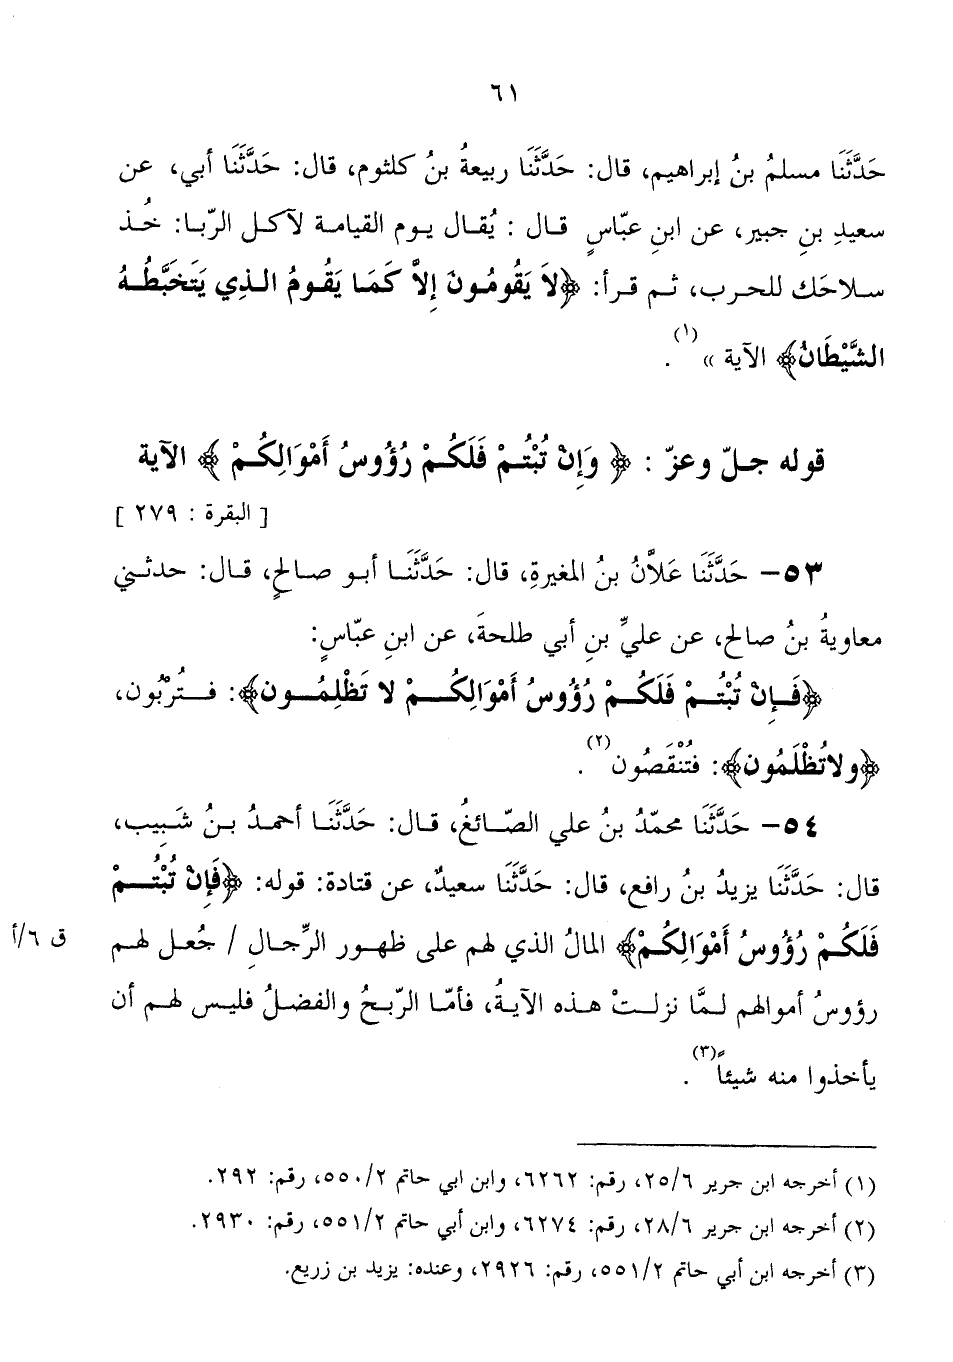 ٦١
حَدَّثَنَا مسلمُ بنُ إبراهيم، قال: حَدَّثَنَا ربيعةُ بنُ كلثوم، قال: حَدَّثَنَا أبي، عن
سعيدِ بنِ جبير، عن ابنِ عبّاسٍ قال : يُقال يوم القيامة لآكل الرّبا: خُذ
سلاحَك للحرب، ثم قرأ: ﴿لاَ يَقُومُونَ إِلاَّ كَمَا يَقُومُ الذِي يَتَخَبَّطُهُ
الشَّيْطَانُ﴾ الآية »(١).
قوله جلّ وعزّ : ﴿ وَإِنْ تُبْتُمْ فَلَكُمْ رُؤُوسُ أَمْوَالِكُمْ ﴾ الآية
[ البقرة : ٢٧٩ ]
٥٣- حَدَّثَنَا عَلاَّنُ بنُ المغيرةِ، قال: حَدَّثَنَا أبو صالحٍ، قال: حدثني
معاويةُ بنُ صالح، عن عليِّ بنِ أبي طلحةَ، عن ابنِ عبّاسٍ:
﴿فَإِنْ تُبْتُمْ فَلَكُمْ رُؤُوسُ أَمْوَالِكُمْ لا تَظْلِمُون﴾: فتُرْبُون،
﴿ولاتُظْلَمُون﴾: فتُنْقَصُون(٢).
٥٤- حَدَّثَنَا محمّدُ بنُ علي الصّائغُ، قال: حَدَّثَنَا أحمدُ بنُ شَبِيب،
قال: حَدَّثَنَا يزيدُ بنُ رافع، قال: حَدَّثَنَا سعيدٌ، عن قتادة: قوله: ﴿فَإِنْ تُبْتُمْ
فَلَكُمْ رُؤُوسُ أَمْوَالِكُمْ﴾ المالُ الذي لهم على ظهور الرِّجالِ / جُعل لهم ق ٦/أ
رؤوسُ أموالهم لمَّا نزلتْ هذه الآيةُ، فأمّا الرّبحُ والفضلُ فليس لهم أن
يأخذوا منه شيئاً(٣).
(١) أخرجه ابن جرير ٢٥/٦، رقم: ٦٢٦٢، وابن ابي حاتم ٥٥٠/٢، رقم: ٢٩٢.
(٢) أخرجه ابن جرير ٢٨/٦، رقم: ٦٢٧٤، وابن أبي حاتم ٥٥١/٢، رقم: ٢٩٣٠.
(٣) أخرجه ابن أبي حاتم ٥٥١/٢، رقم: ٢٩٢٦، وعنده: يزيد بن زريع.